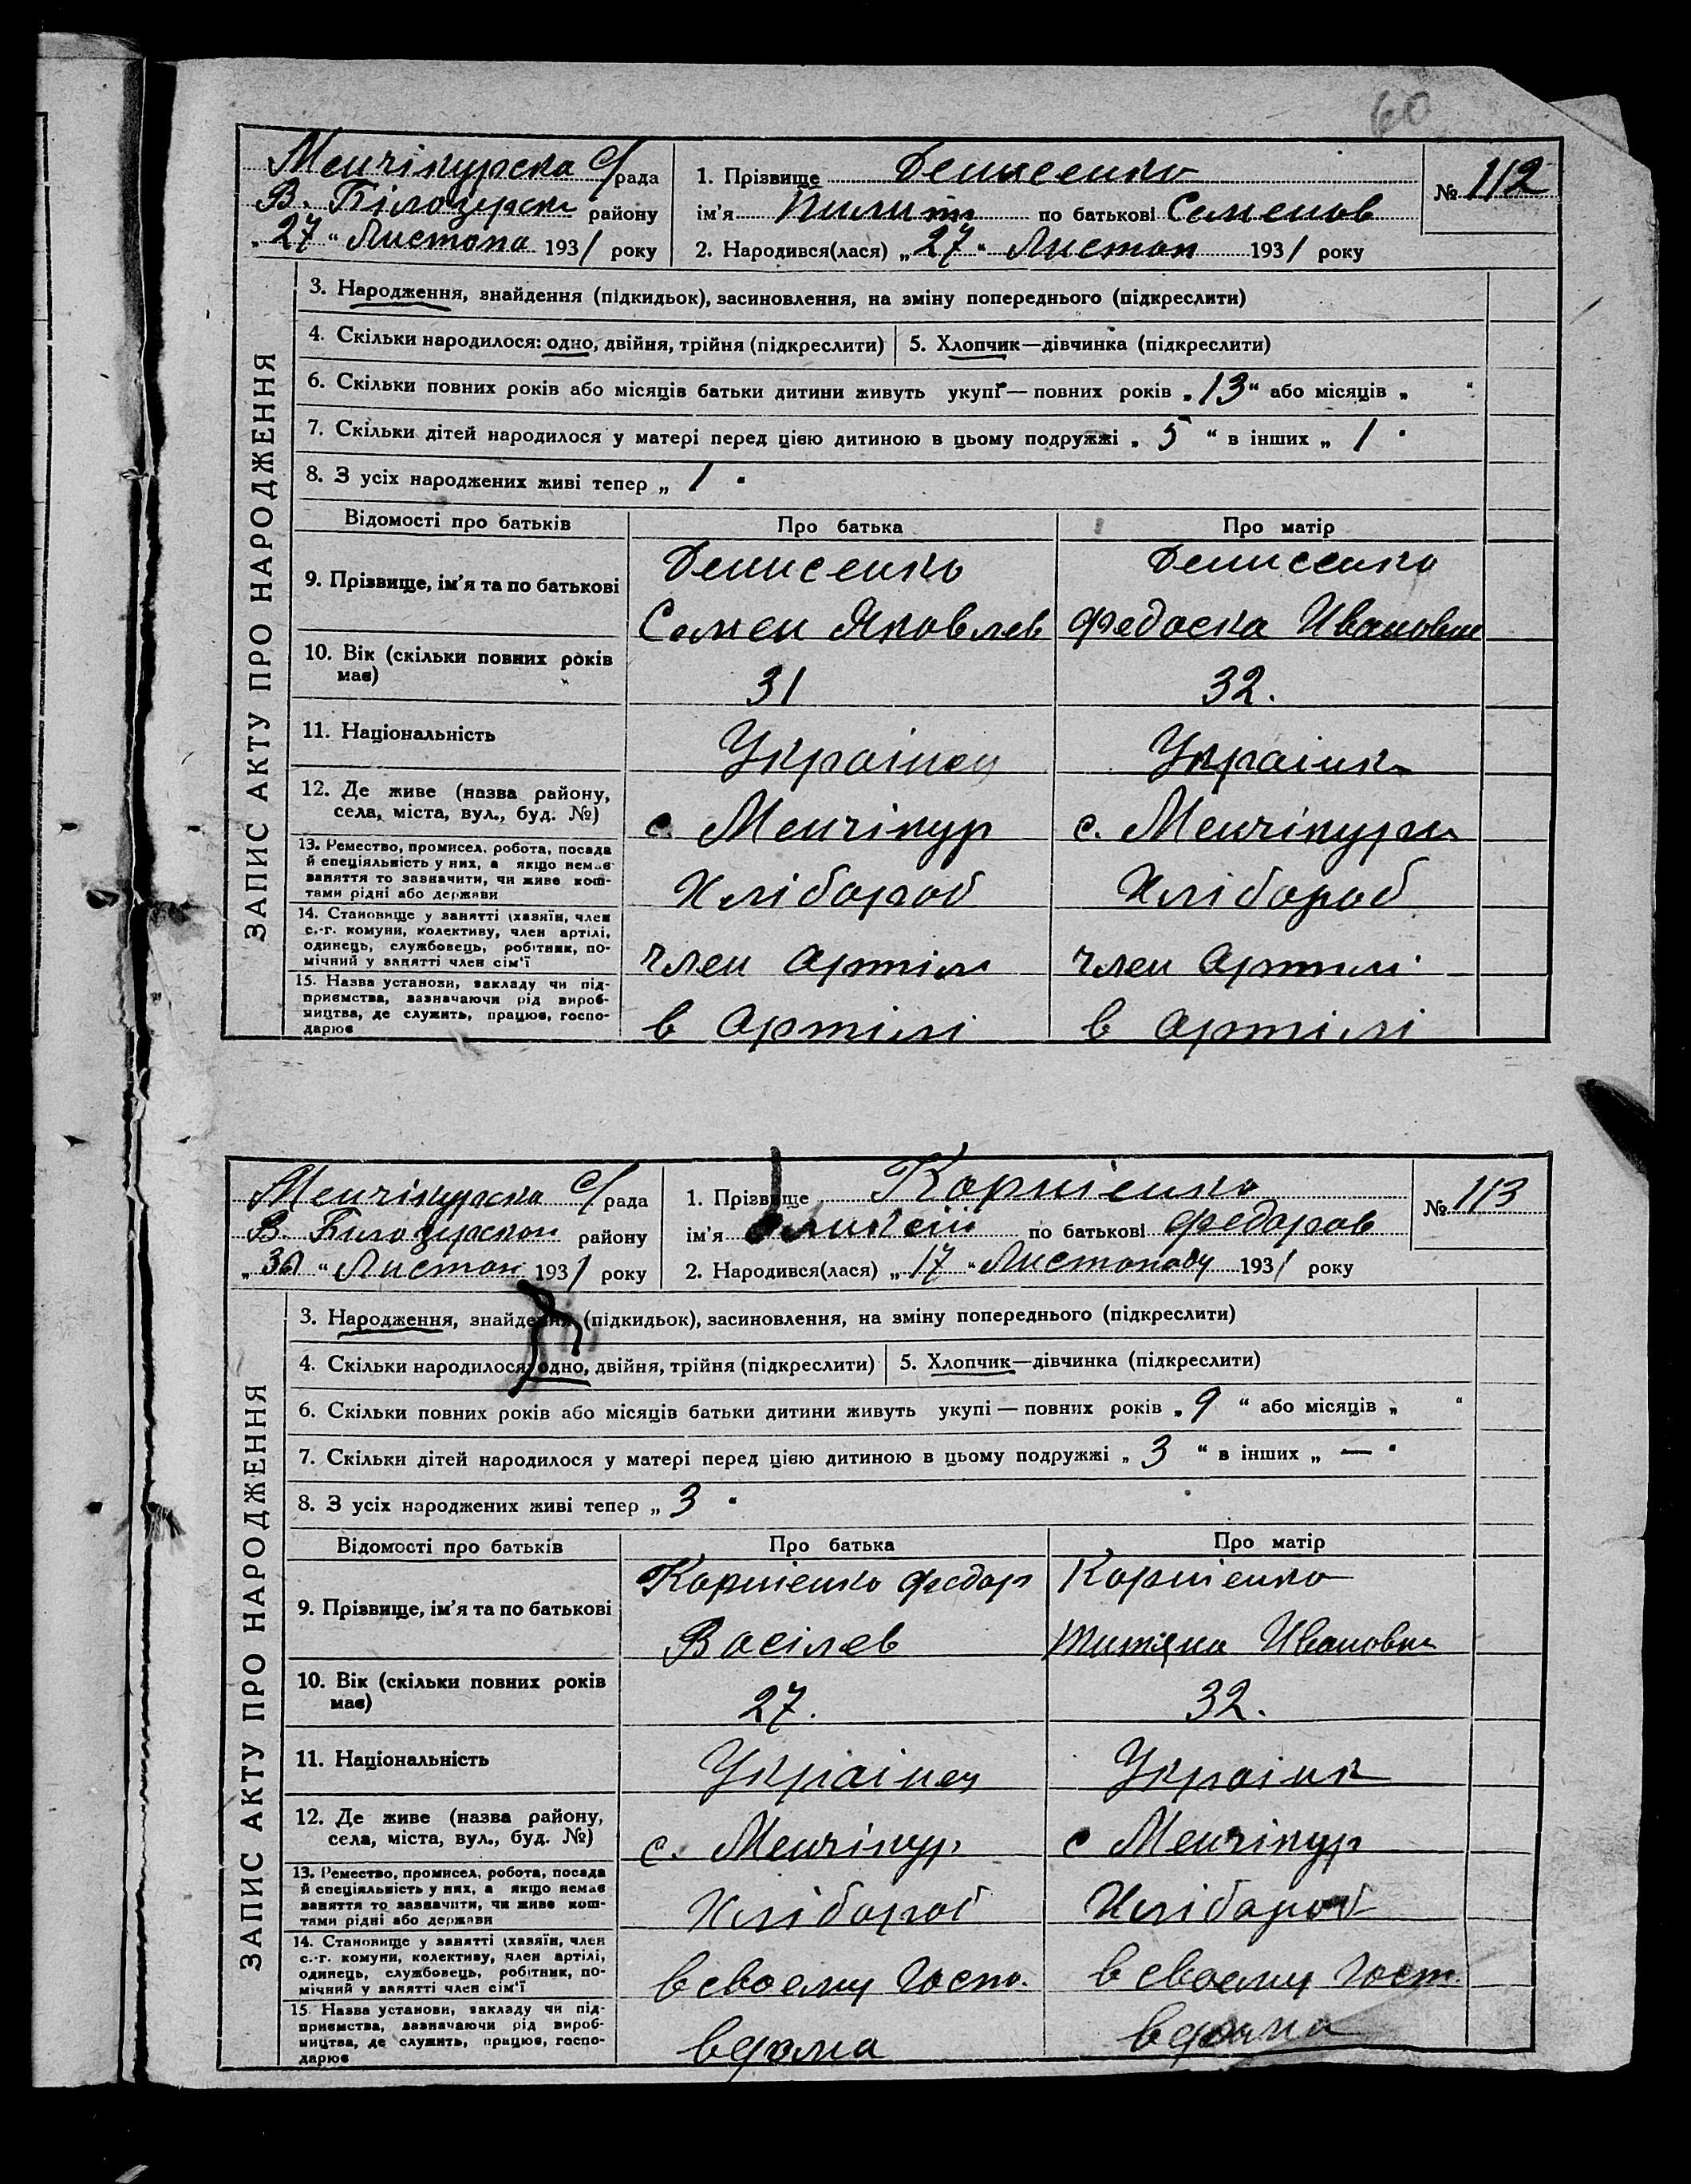 60
Менчікурска с/рада
В. Білозерськ району
„27“ Листопа 1931 року
1. Прізвище Денисенко
ім'я Пилип по батькові Семенов
2. Народився(лася) „27“ Листоп 1931 року
№ 112
ЗАПИС АКТУ ПРО НАРОДЖЕННЯ
3. Народження, знайдення (підкидьок), засиновлення, на зміну попереднього (підкреслити)
4. Скільки народилося: одно, двійня, трійня (підкреслити) 5. Хлопчик—дівчинка (підкреслити)
6. Скільки повних років або місяців батьки дитини живуть укупі — повних років „13“ або місяців „ “
7. Скільки дітей народилося у матері перед цією дитиною в цьому подружжі „ 5 “ в інших „ 1 “
8. З усіх народжених живі тепер „ 1 “
Відомості про батьків Про батька Про матір
9. Прізвище, ім'я та по батькові
Денисенко Денисенко
Семен Яковлев Федоска Ивановн
10. Вік (скільки повних років має)
31 32.
11. Національність
Украінец Украінк
12. Де живе (назва району, села, міста, вул., буд. №)
с. Менчікур с. Менчікури
13. Ремество, промисел, робота, посада й спеціяльність у них, а якщо немає заняття то зазначити, чи живе коштами рідні або держави
Хлібороб Хлібороб
14. Становище у занятті (хазяїн, член с.-г. комуни, колективу, член артілі, одинець, службовець, робітник, помічний у занятті член сім'ї
член Артілі член Артилі
15. Назва установи, закладу чи підприємства, зазначаючи рід виробництва, де служить, працює, господарює
в Артілі в Артілі
Менчікурска с/рада
В. Білозерскои району
„30“ Листоп 1931 року
1. Прізвище Корнієнко
ім'я по батькові Федоров
2. Народився(лася) „17“ Листопаду 1931 року
№ 113
ЗАПИС АКТУ ПРО НАРОДЖЕННЯ
3. Народження, знайдення (підкидьок), засиновлення, на зміну попереднього (підкреслити)
4. Скільки народилося: одно, двійня, трійня (підкреслити) 5. Хлопчик—дівчинка (підкреслити)
6. Скільки повних років або місяців батьки дитини живуть укупі — повних років „ 9 “ або місяців „ “
7. Скільки дітей народилося у матері перед цією дитиною в цьому подружжі „ 3 “ в інших „ — “
8. З усіх народжених живі тепер „ 3 “
Відомості про батьків Про батька Про матір
9. Прізвище, ім'я та по батькові
Корнієнко Федор Корнієнко
Васілев Титяна Ивановн
10. Вік (скільки повних років має)
27. 32.
11. Національність
Украінец Украінк
12. Де живе (назва району, села, міста, вул., буд. №)
с. Менчікур с Менчікур
13. Ремество, промисел, робота, посада й спеціяльність у них, а якщо немає заняття то зазначити, чи живе коштами рідні або держави
Хлібороб Хлібороб
14. Становище у занятті (хазяїн, член с.-г. комуни, колективу, член артілі, одинець, службовець, робітник, помічний у занятті член сім'ї
в своєму Госпо. в своєму Госп.
15. Назва установи, закладу чи підприємства, зазначаючи рід виробництва, де служить, працює, господарює
вдома вдома